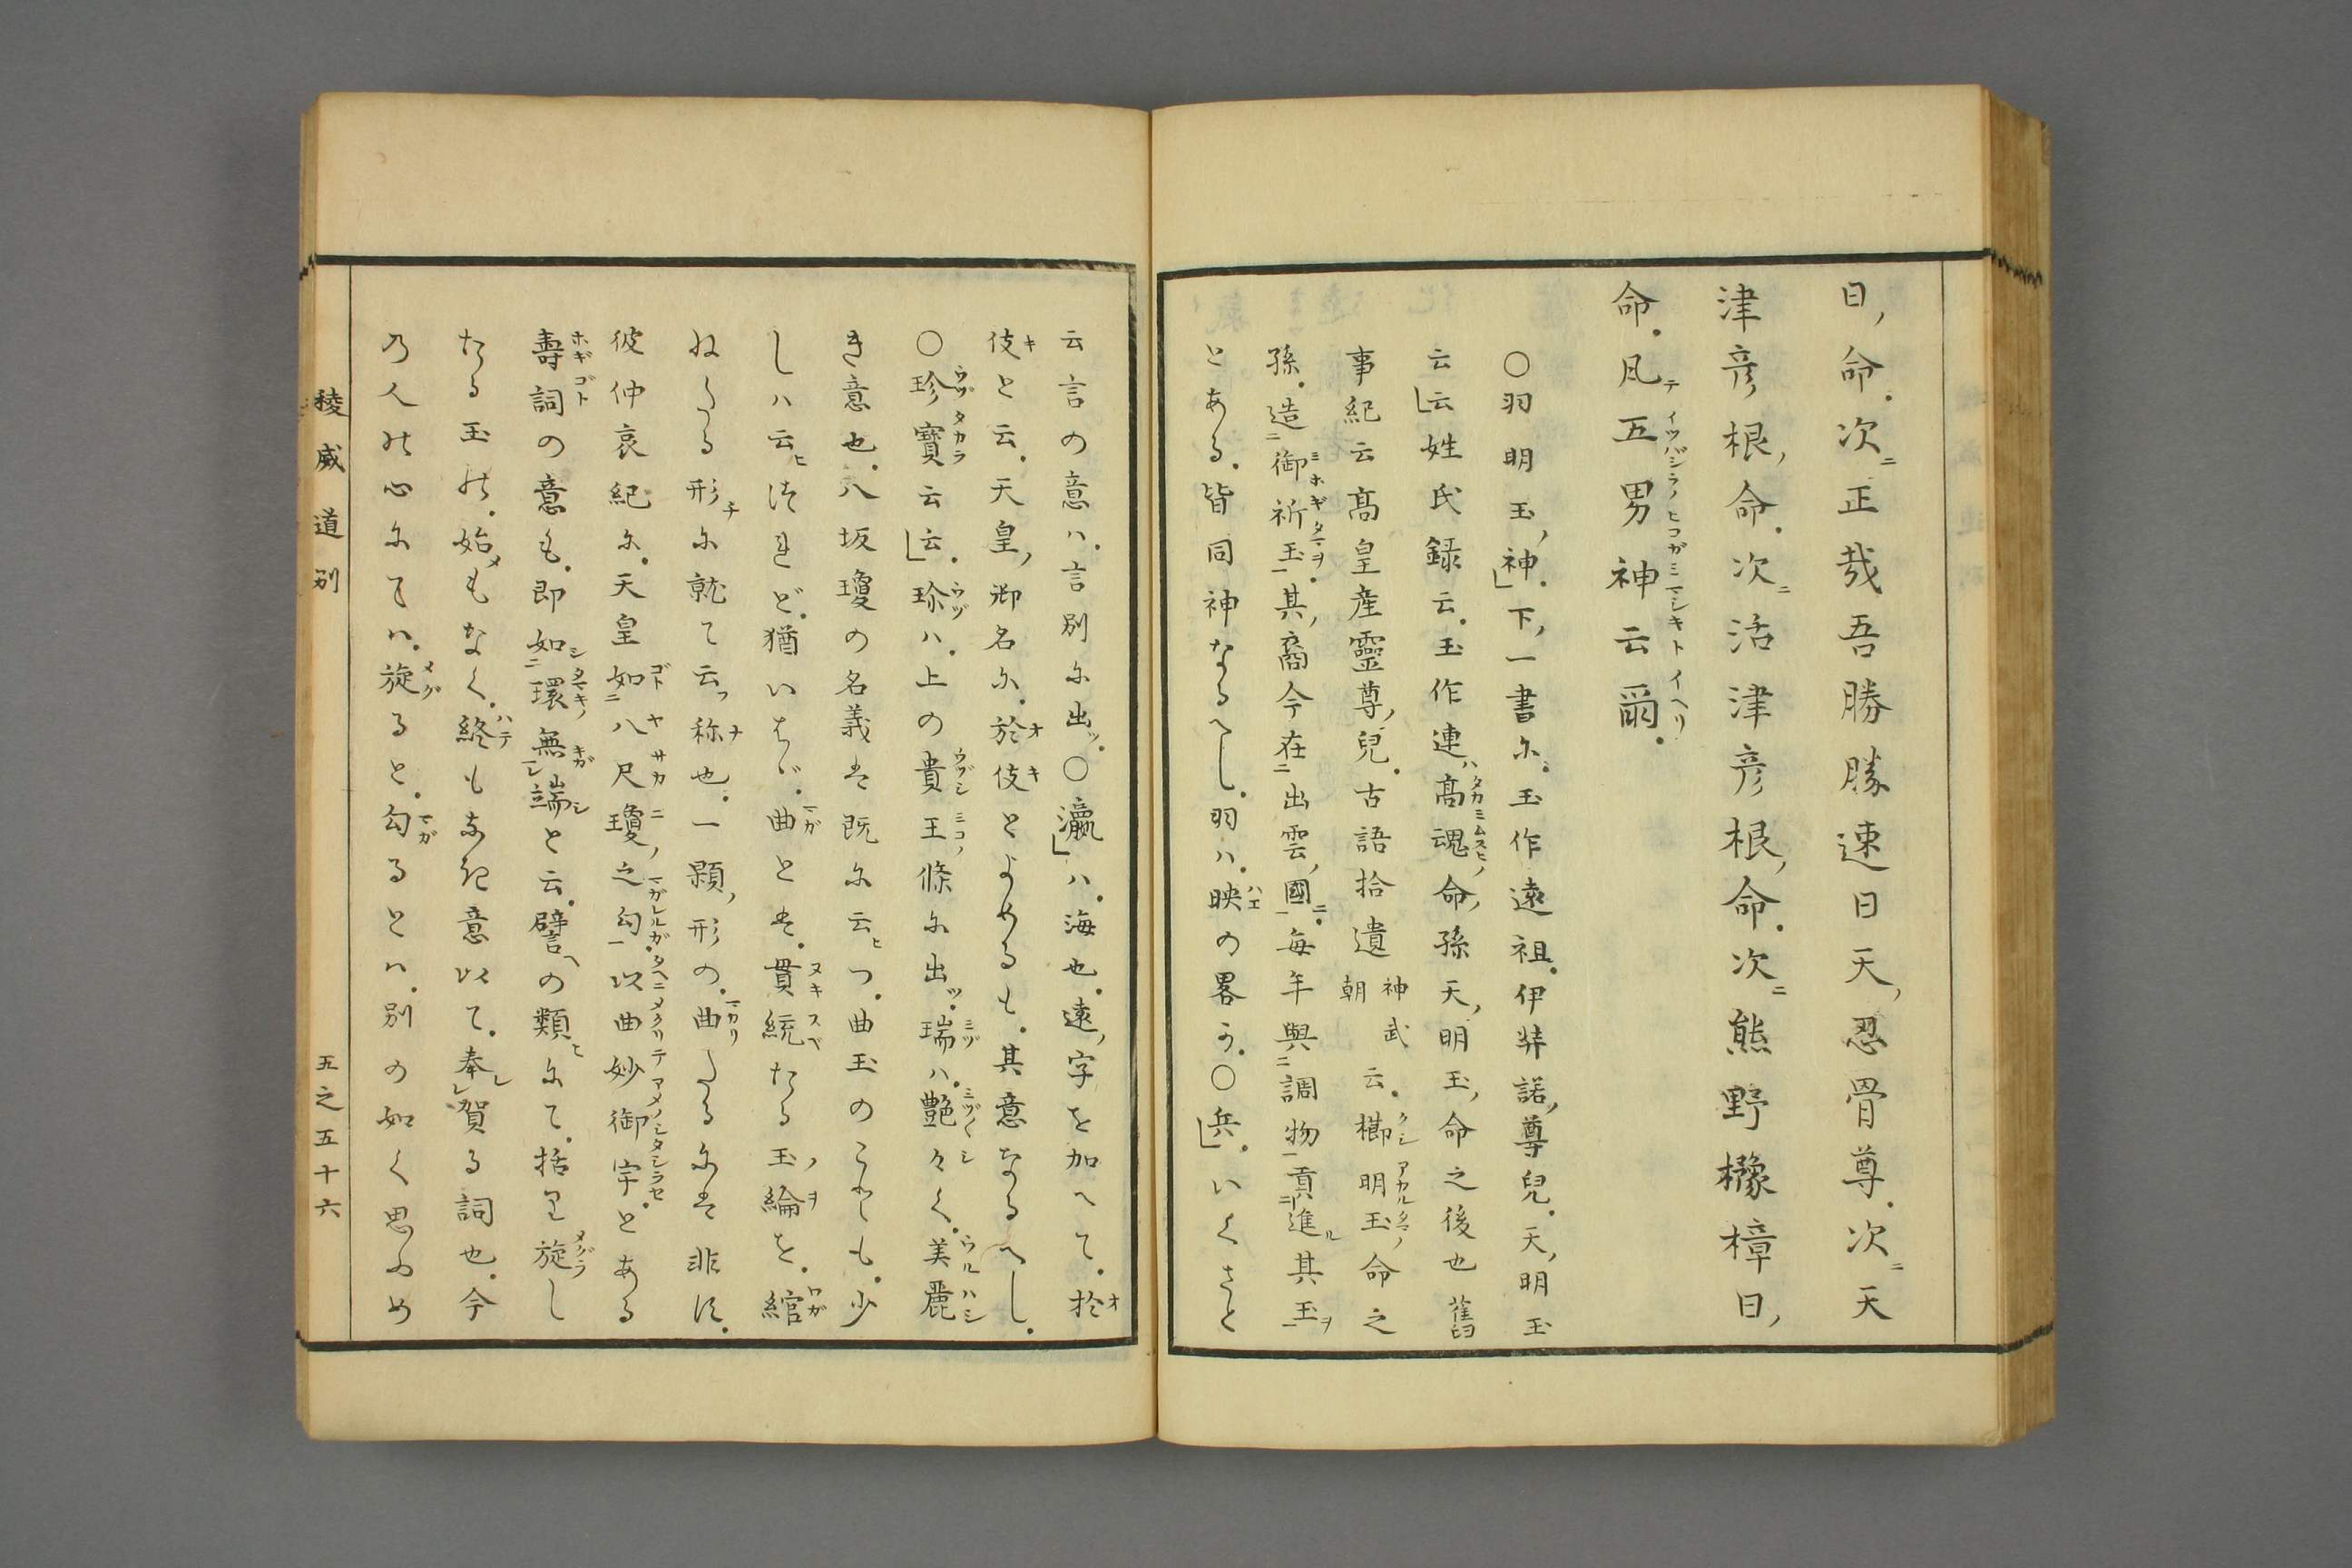 日命次正哉吾勝勝速日天忍骨尊次天
津彦根命次活津彦根命次熊野櫲樟日
命凡五男神云爾
○羽明玉神下一書尓玉作遠祖伊弉諾尊兒天明玉
云云姓氏録云玉作連ハ高魂命孫天明玉命之後也舊
事紀云高皇産靈尊兒古語拾遺神武朝云櫛明玉命之
孫造御祈玉其裔今在出雲國毎年與調物貢進其玉
とある皆同神なるへし羽ハ映の畧か○兵いくさと
云言の意ハ言別尓出ッ○瀛ハ海也遠字を加へて於
伎と云天皇御名尓於伎とよめるも其意なるへし
○珍寶云云珍ハ上の貴王條尓出ッ瑞ハ艶々く美麗
き意也八坂瓊の名義は既尓云ヒつ曲玉のこれも少
しハ云ヒ徒れど猶いはゞ曲とは貫統たる玉綸を綰
ねたる形尓就て云フ称也一顆形の曲りたる尓は非す
彼仲哀紀尓天皇如八尺瓊之勾以曲妙御宇とある
壽詞の意も即如環無端と云譬の類尓て括里旋し
たる玉能始メもなく終も奈起意以て奉賀る詞也今
乃人能心尓てハ旋ると勾るとハ別の如く思ふめ
稜威道別 五之五十六